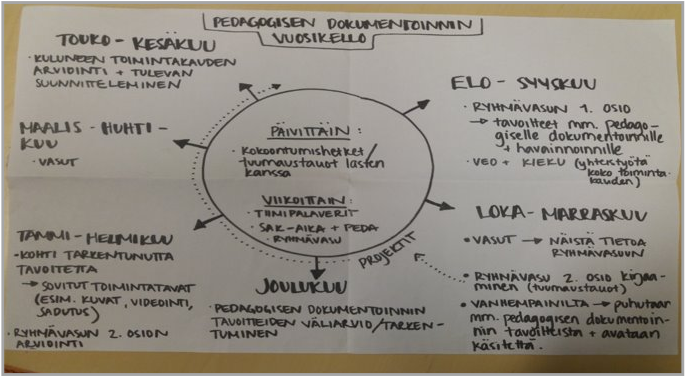 PEDAGOGISEN DOKUMENTOINNIN
VUOSIKELLO
TOUKO - KESÄKUU
· KULUNEEN TOIMINTAKAUDEN
ARVIOINTI + TULEVAN
SUUNNITTELEMINEN
ELO - SYYSKUU
· RYHMÄVASUN 1. OSIO
→ tavoitteet mm. pedago-
giselle dokumentoinnille
+ havainnoinnille
· VEO + KIEKU (yhteistyötä
koko toiminta-
kauden)
MAALIS - HUHTI -
KUU
· VASUT
PÄIVITTÄIN:
· Kokoontumishetket/
tuumaustauot lasten
kanssa
VIIKOITTAIN:
· TIIMIPALAVERIT
· SAK-AIKA + PEDA
· RYHMÄVASU
LOKA - MARRASKUU
• VASUT → NÄISTÄ TIETOA
RYHMÄVASUUN
• RYHMÄVASU 2. OSIO kirjaa-
minen (tuumaustauot)
• VANHEMPAINILTA → puhutaan
mm. pedagogisen dokumentoin-
nin tavoitteista + avataan
käsitettä.
TAMMI - HELMIKUU
- KOHTI TARKENTUNUTTA
TAVOITETTA
→ SOVITUT TOIMINTATAVAT
(ESIM. KUVAT, VIDEOINTI,
SADUTUS)
· RYHMÄVASUN 2. OSION
ARVIOINTI
PROJEKTIT
JOULUKUU
· PEDAGOGISEN DOKUMENTOINNIN
TAVOITTEIDEN VÄLIARVIO/TARKEN-
TUMINEN